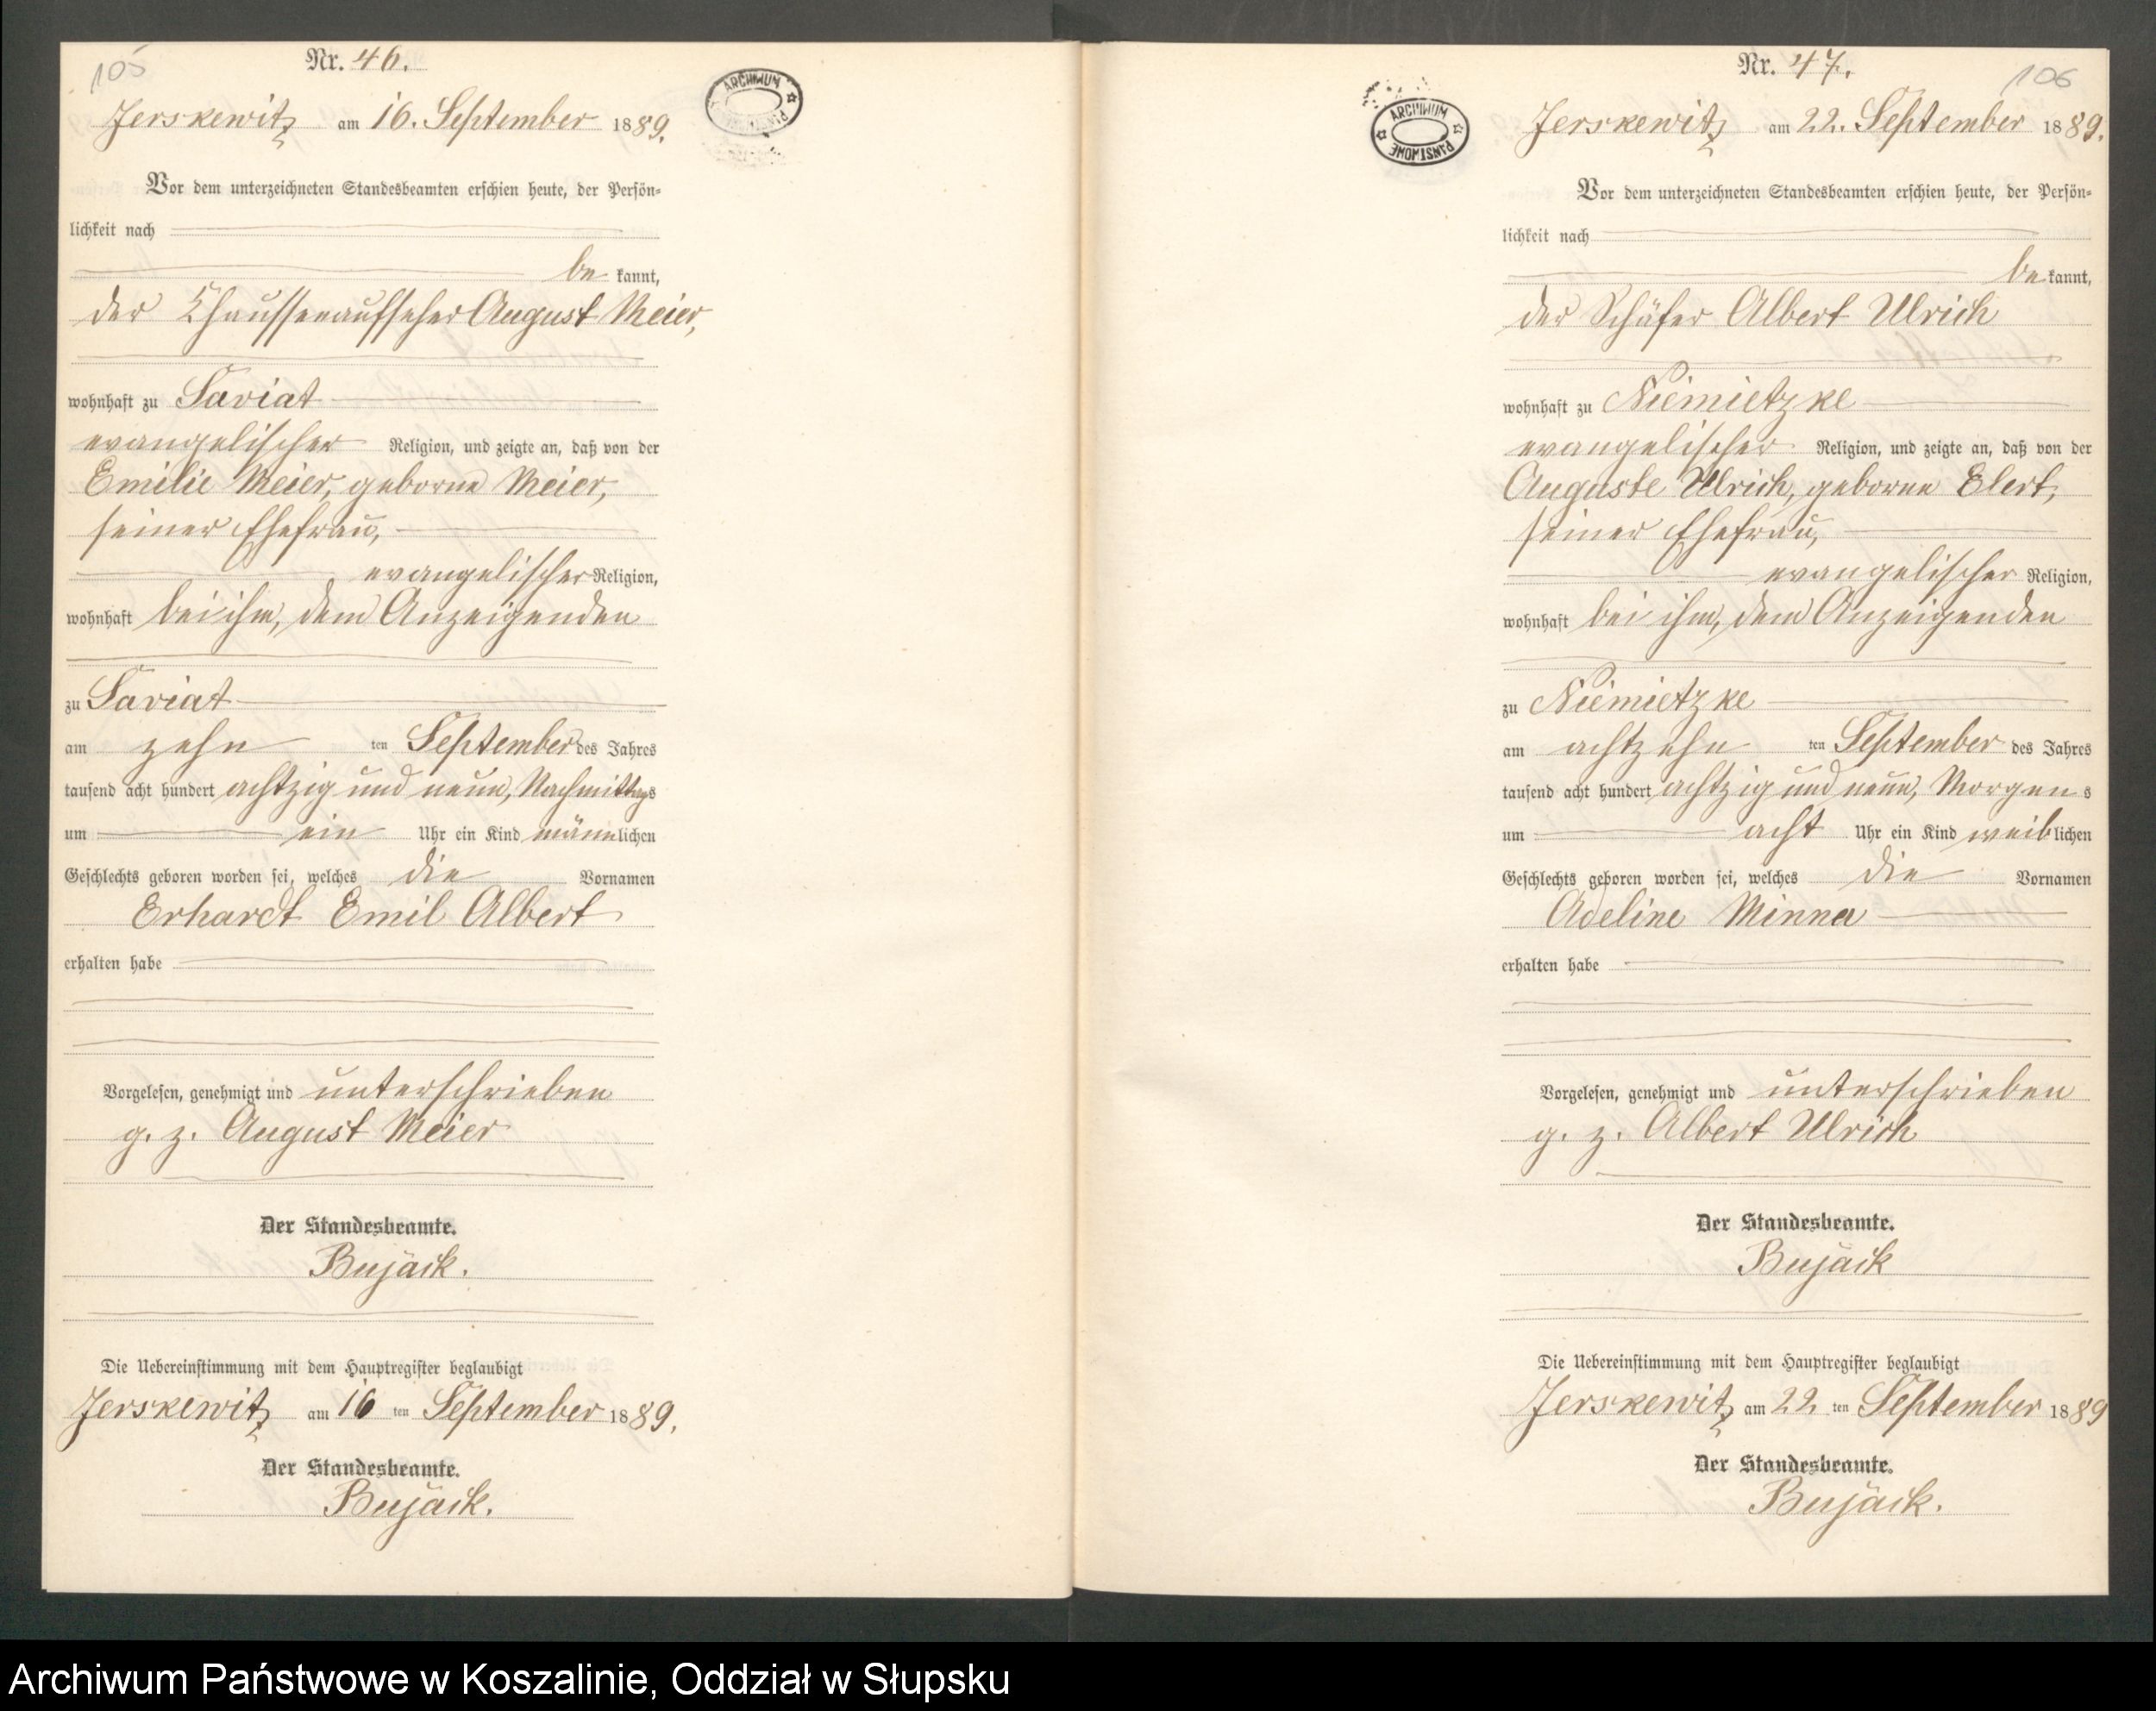 105
Nr. 46.
Jerskewitz am 16. September 1889.
ARCHIWUM PAŃSTWOWE
Vor dem unterzeichneten Standesbeamten erschien heute, der Persön-
lichkeit nach
be kannt,
der Chausseeaufseher August Meier,
wohnhaft zu Saviat
evangelischer Religion, und zeigte an, daß von der
Emilie Meier, geborne Meier,
seiner Ehefrau,
evangelischer Religion,
wohnhaft bei ihm, dem Anzeigenden
zu Saviat
am zehn ten September des Jahres
tausend acht hundert achtzig und neun, Nachmittags
um ein Uhr ein Kind männlichen
Geschlechts geboren worden sei, welches die Vornamen
Erhardt Emil Albert
erhalten habe
Vorgelesen, genehmigt und unterschrieben
g. z. August Meier
Der Standesbeamte.
Bujack.
Die Uebereinstimmung mit dem Hauptregister beglaubigt
Jerskewitz am 16 ten September 1889.
Der Standesbeamte.
Bujack.
Nr. 47.
106
Jerskewitz am 22. September 1889.
ARCHIWUM PAŃSTWOWE
Vor dem unterzeichneten Standesbeamten erschien heute, der Persön-
lichkeit nach
be kannt,
der Schäfer Albert Ulrich
wohnhaft zu Niemietzke
evangelischer Religion, und zeigte an, daß von der
Auguste Ulrich, geborne Elert,
seiner Ehefrau,
evangelischer Religion,
wohnhaft bei ihm, dem Anzeigenden
zu Niemietzke
am achtzehn ten September des Jahres
tausend acht hundert achtzig und neun, Morgens
um acht Uhr ein Kind weiblichen
Geschlechts geboren worden sei, welches die Vornamen
Adeline Minna
erhalten habe
Vorgelesen, genehmigt und unterschrieben
g. z. Albert Ulrich
Der Standesbeamte.
Bujack
Die Uebereinstimmung mit dem Hauptregister beglaubigt
Jerskewitz am 22 ten September 1889
Der Standesbeamte.
Bujack.
Archiwum Państwowe w Koszalinie, Oddział w Słupsku